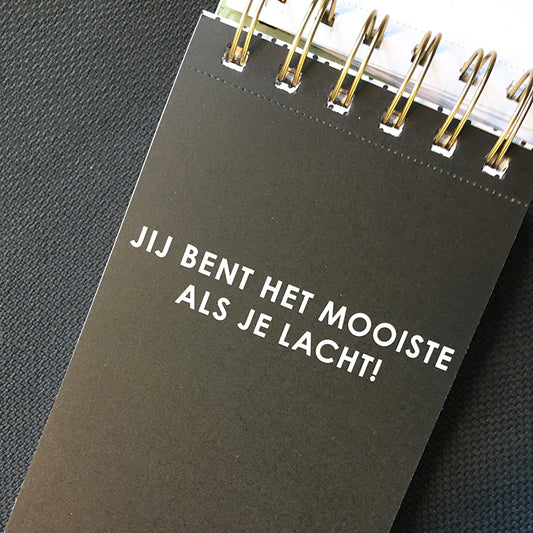 JIJ BENT HET MOOISTE
ALS JE LACHT!